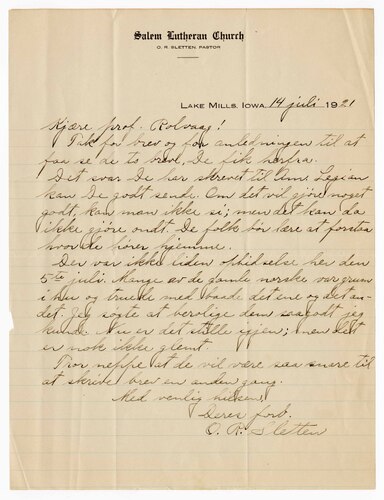 Salem Lutheran Church
O. R. SLETTEN, PASTOR
LAKE MILLS, IOWA, 14 juli 1921
Kjære prof. Rolvaag!
Tak for brev og for anledningen til at
faa se de to brev, De fik herfra.
Det svar De har skrevet til Am. Legion
kan De godt sende. Om det vil gjøre noget
godt, kan man ikke si; men det kan da
ikke gjøre ondt. De folk bør lære at forstaa
hvor de hører hjemme.
Der var ikke liden ophidselse her den
5te juli. Mange av de gamle norske var grum
i hu og truede med baade det ene og det an-
det. Jeg søgte at berolige dem saa godt jeg
kunde. Nu er det stille igjen; men det
er nok ikke glemt.
Tror neppe at de vil være saa snare til
at skrive brev en anden gang.
Med venlig hilsen,
Deres forb.
O. R. Sletten